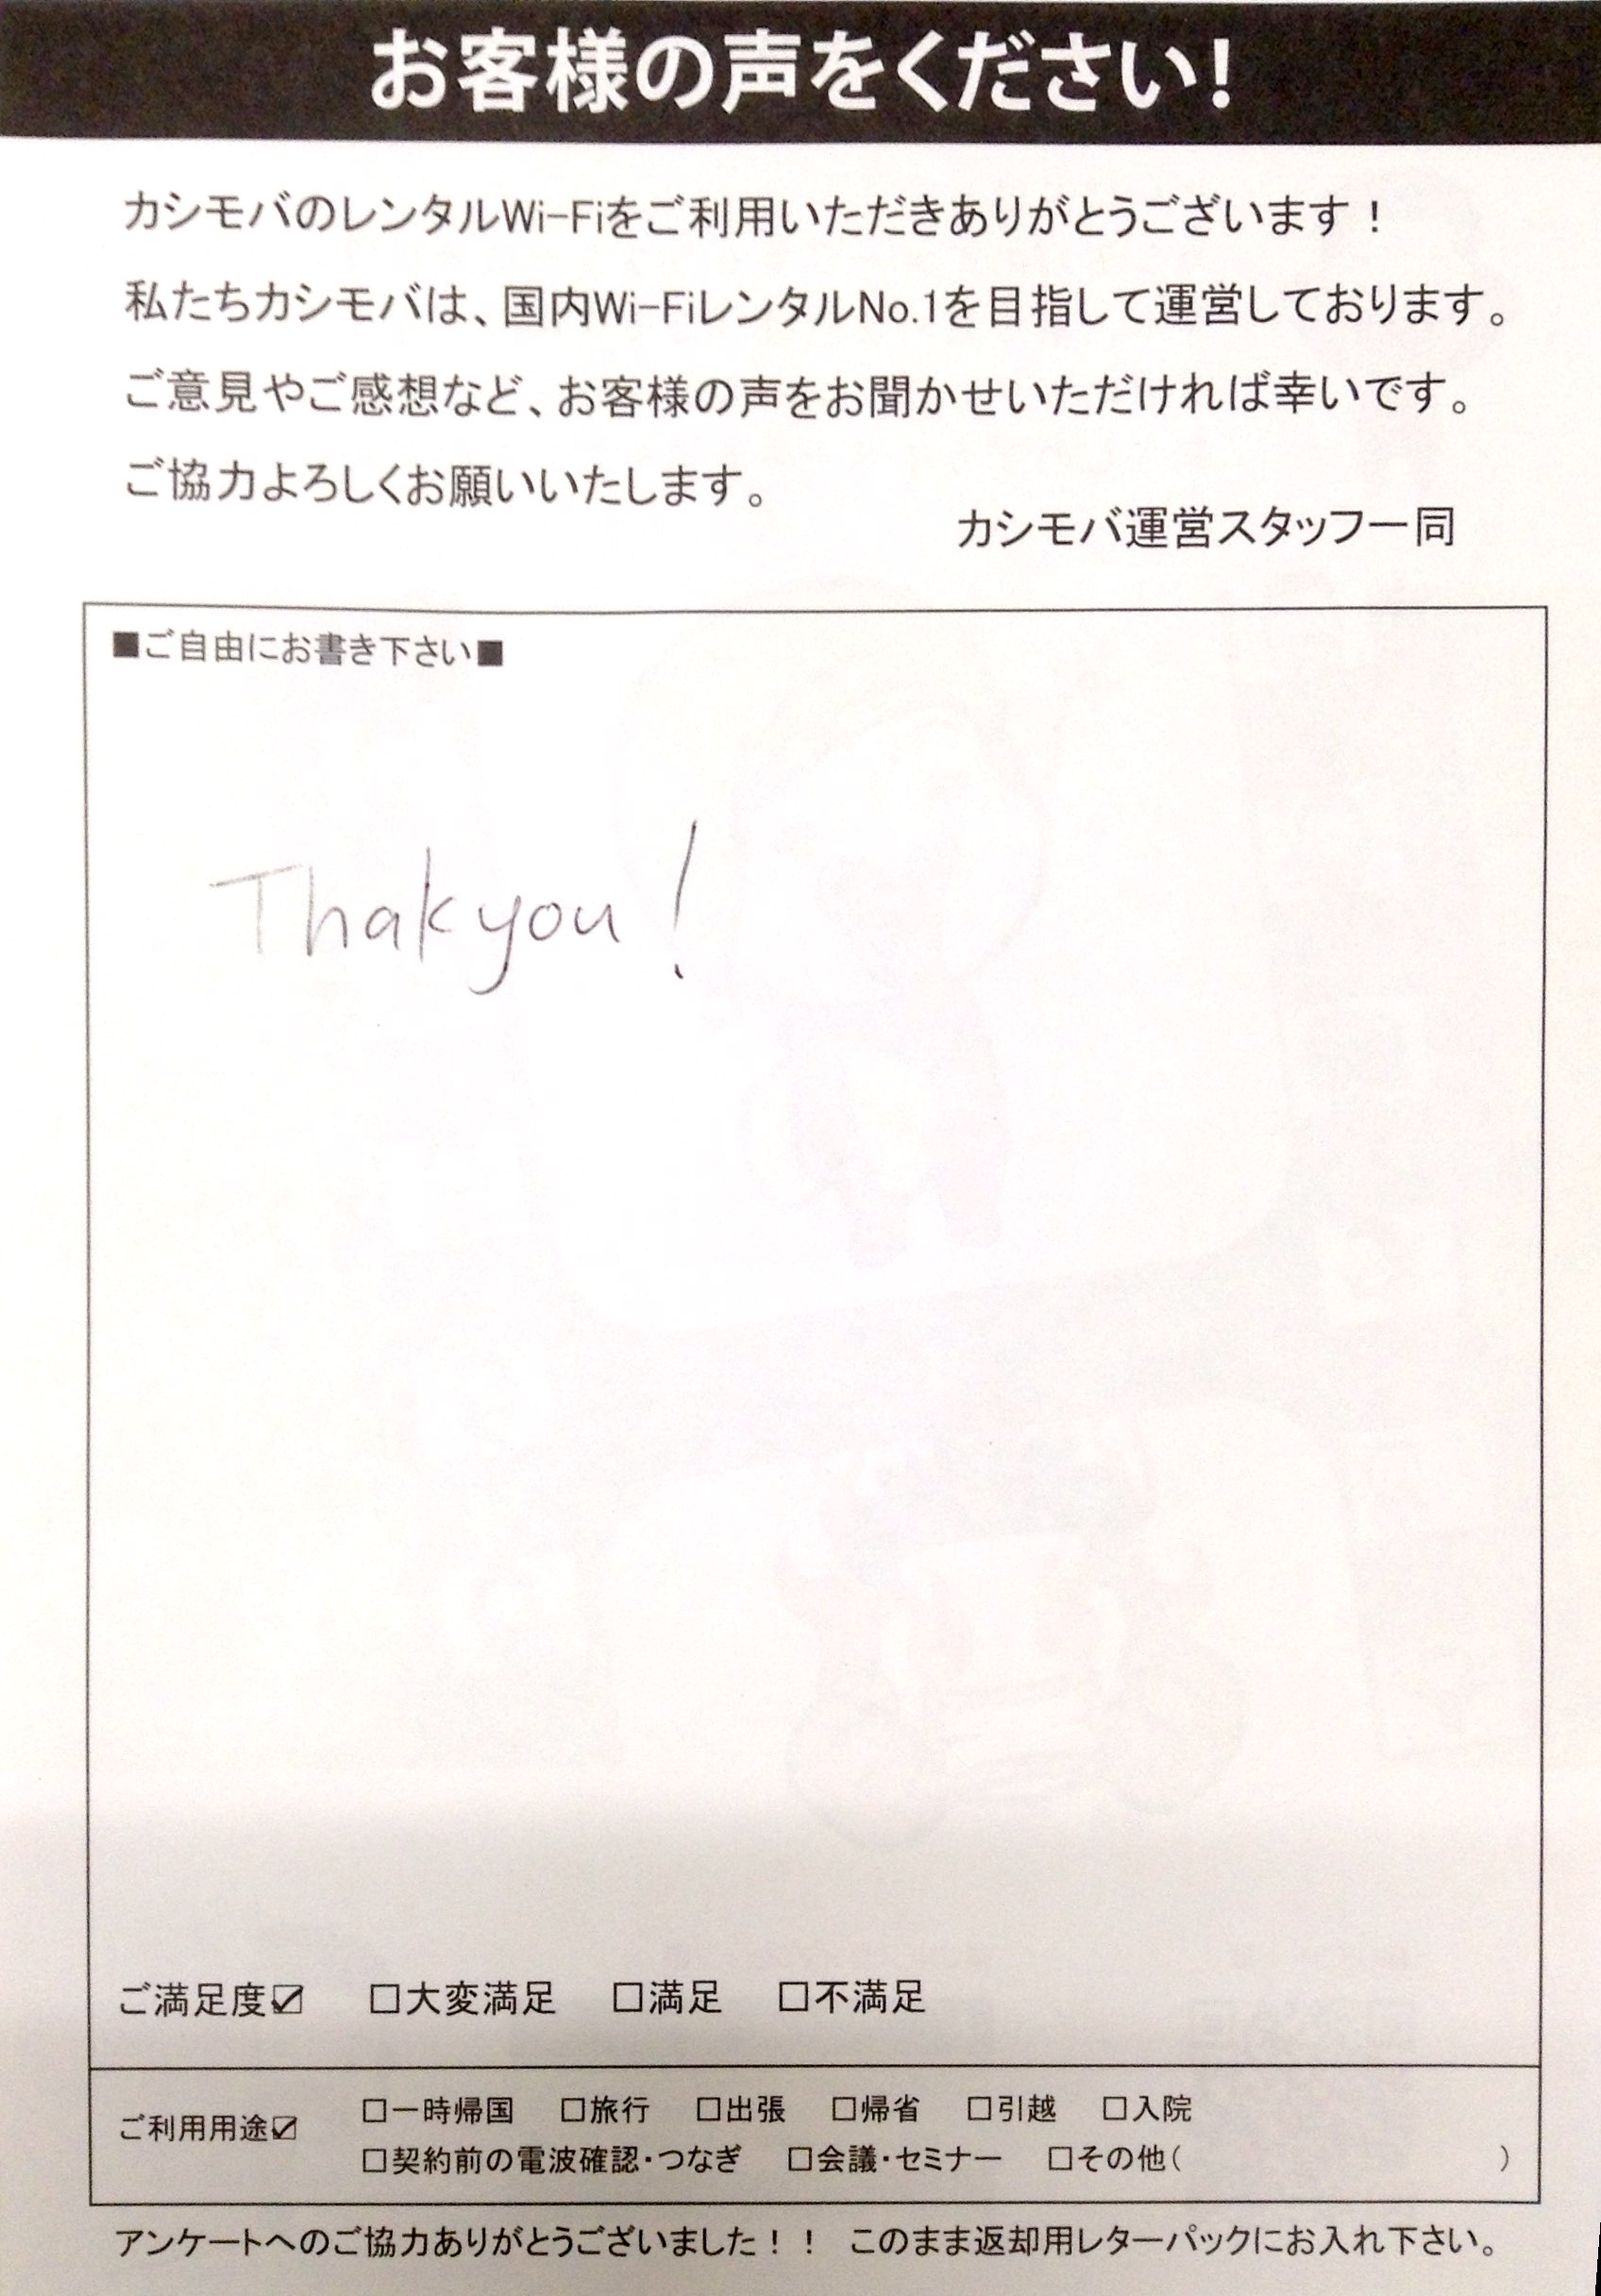 お客様の声をください!
カシモバのレンタルWi-Fiをご利用いただきありがとうございます！
私たちカシモバは、国内Wi-FiレンタルNo.1を目指して運営しております。
ご意見やご感想など、お客様の声をお聞かせいただければ幸いです。
ご協力よろしくお願いいたします。
カシモバ運営スタッフ一同
■ご自由にお書き下さい■
Thak you!
ご満足度☑ □大変満足 □満足 □不満足
ご利用用途☑ □一時帰国 □旅行 □出張 □帰省 □引越 □入院
□契約前の電波確認・つなぎ □会議・セミナー □その他( )
アンケートへのご協力ありがとうございました！！ このまま返却用レターパックにお入れ下さい。